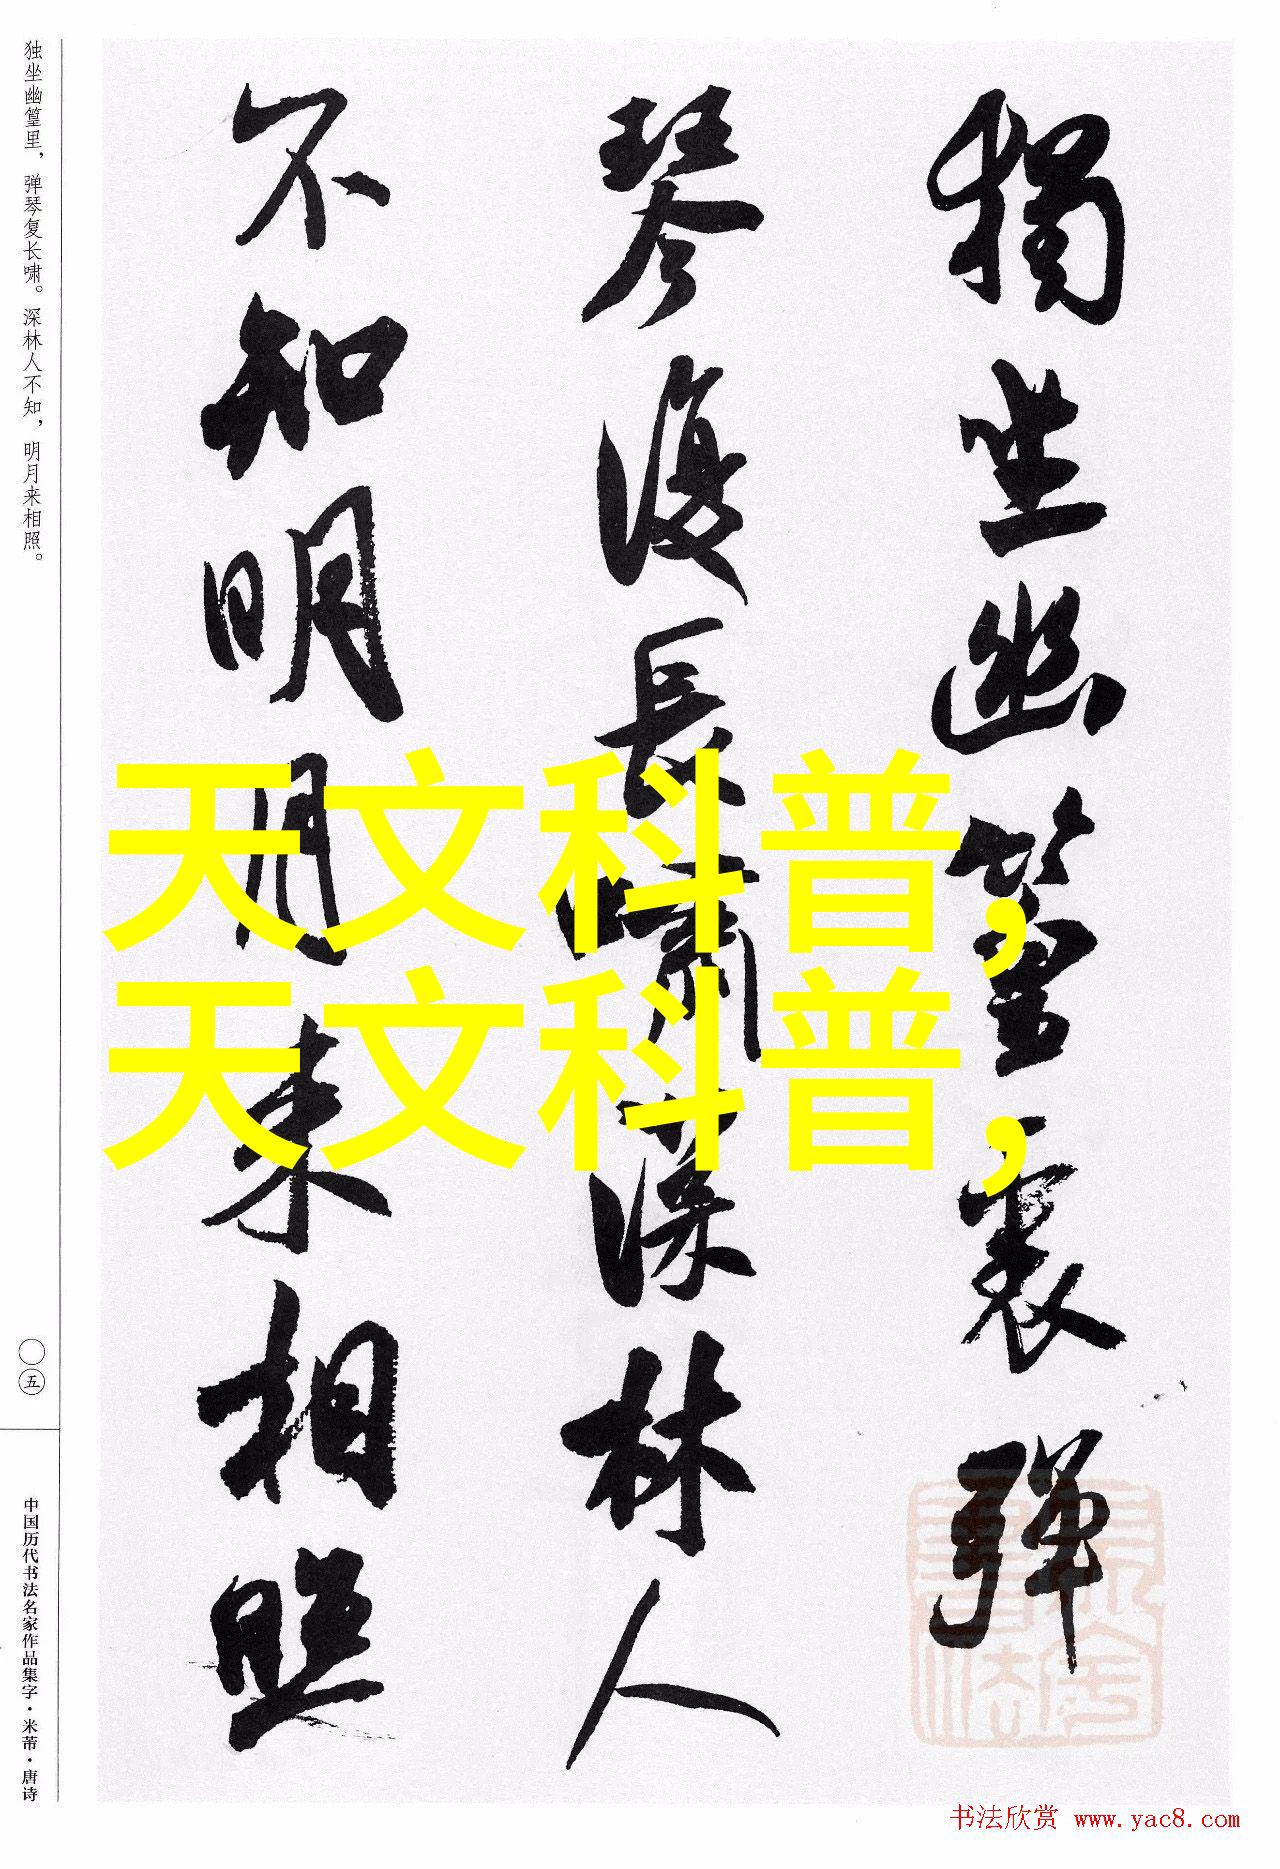 獨坐幽篁裏彈
琴復長嘯深林人
不知明月来相照
独坐幽篁里，弹琴复长啸。深林人不知，明月来相照。
〇五
中国历代书法名家作品集字·米芾·唐诗
天文科普,
天文科普,
书法欣赏 www.yac8.com